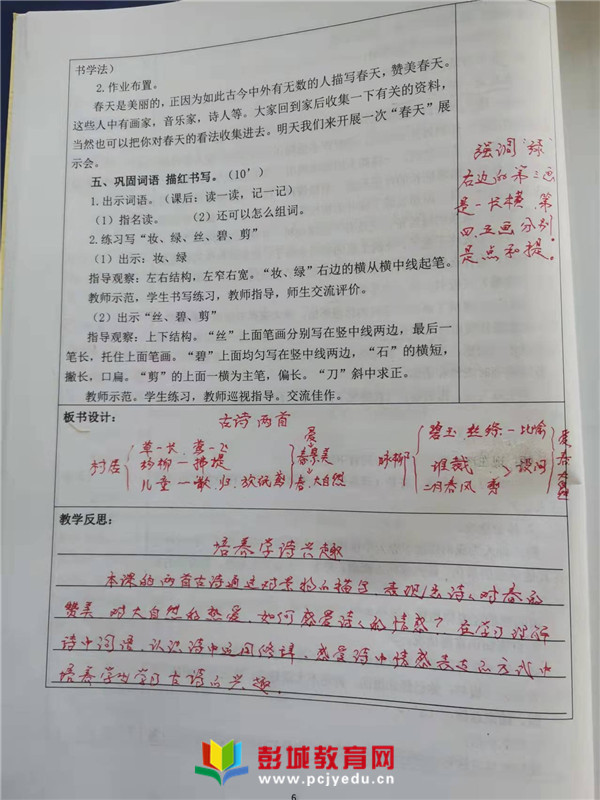 书学法）
2.作业布置。
春天是美丽的，正因为如此古今中外有无数的人描写春天，赞美春天。
这些人中有画家，音乐家，诗人等。大家回到家后收集一下有关的资料，
当然也可以把你对春天的看法收集进去。明天我们来开展一次“春天”展
示会。
五、巩固词语 描红书写。（10’）
1.出示词语。（课后：读一读，记一记）
（1）指名读。 （2）还可以怎么组词。
2.练习写“妆、绿、丝、碧、剪”
（1）出示：妆、绿
指导观察：左右结构，左窄右宽。“妆、绿”右边的横从横中线起笔。
教师示范，学生书写练习，教师指导，师生交流评价。
（2）出示“丝、碧、剪”
指导观察：上下结构。“丝”上面笔画分别写在竖中线两边，最后一
笔长，托住上面笔画。“碧”上面均匀写在竖中线两边，“石”的横短，
撇长，口扁。“剪”的上面一横为主笔，偏长。“刀”斜中求正。
教师示范。学生练习，教师巡视指导。交流佳作。
强调“绿”
右边的第三画
是一长横，第
四、五画分别
是点和提。
板书设计：
古诗两首
村居
草—长 莺—飞
杨柳—拂堤
儿童—散 归
爱
春景美
春、大自然
咏柳
碧玉 丝绦—比喻
谁裁 设问
二月春风 剪
爱春
教学反思：
培养学诗兴趣
本课的两首古诗通过对景物的描写，表现了古诗人对春的
赞美，对大自然的热爱。如何感受诗人的情感？在学习理解
诗中词语、认识诗中运用修辞、感受诗中情感表达的方式中
培养学生学习古诗的兴趣。
6
彭城教育网
www.pcjyedu.cn